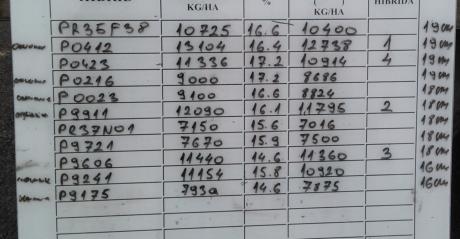 KG/HA % ( ) KG/HA HIBRIDA
PR35F38 10725 16.6 10400 19cm
P0412 13104 16.4 12738 1 19cm
P0423 11336 17.2 10914 4 19cm
P0216 9000 17.2 8686 19cm
P0023 9100 16.6 8824 18cm
P9911 12090 16.1 11795 2 18cm
PR37N01 7150 15.6 7016 18cm
P9721 7670 15.9 7500 18cm
P9606 11440 14.6 11360 3 18cm
P9241 11154 15.8 10920 16cm
P9175 7930 14.6 7875 16cm